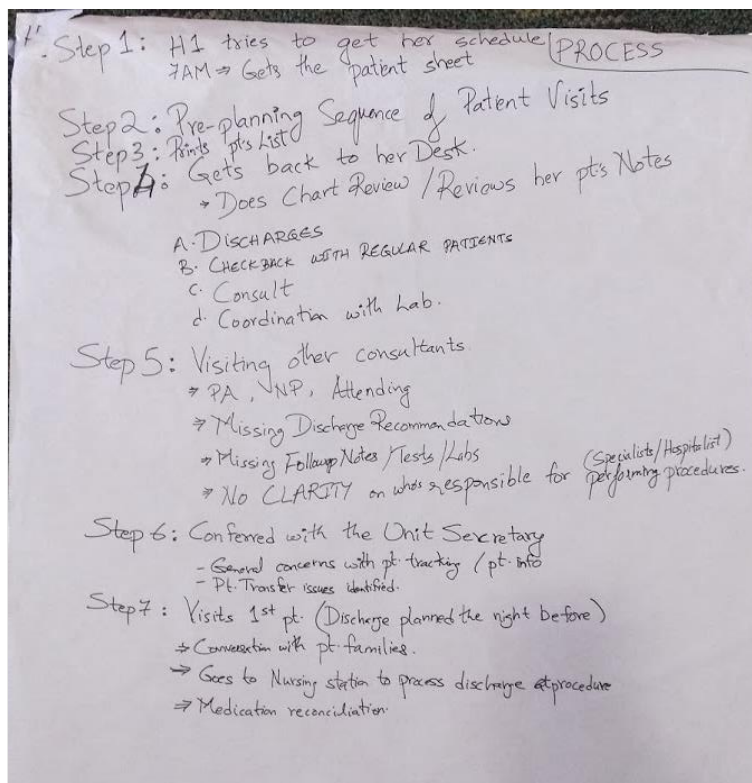 Step 1: H1 tries to get her schedule
PROCESS
7AM ⇒ Gets the patient sheet
Step 2: Pre-planning Sequence of Patient Visits
Step 3: Prints pt's List
Step 4: Gets back to her Desk.
→ Does Chart Review / Reviews her pt's Notes
A. DISCHARGES
B. CHECKBACK WITH REGULAR PATIENTS
C. Consult
d. Coordination with Lab.
Step 5: Visiting other consultants
⇒ PA, NP, Attending
⇒ Missing Discharge Recommendations
⇒ Missing Followup Notes / Tests / Labs
(Specialists/Hospitalist)
⇒ NO CLARITY on who's responsible for performing procedures.
Step 6: Conferred with the Unit Secretary
- General concerns with pt. tracking / pt. info
- Pt. Transfer issues identified.
Step 7: Visits 1st pt. (Discharge planned the night before)
⇒ Conversation with pt. families.
⇒ Goes to Nursing station to process discharge procedure
⇒ Medication reconciliation.